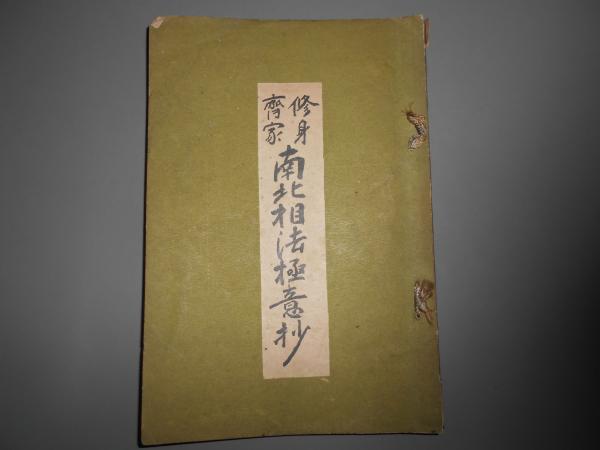 修身
齊家
南北相法極意抄